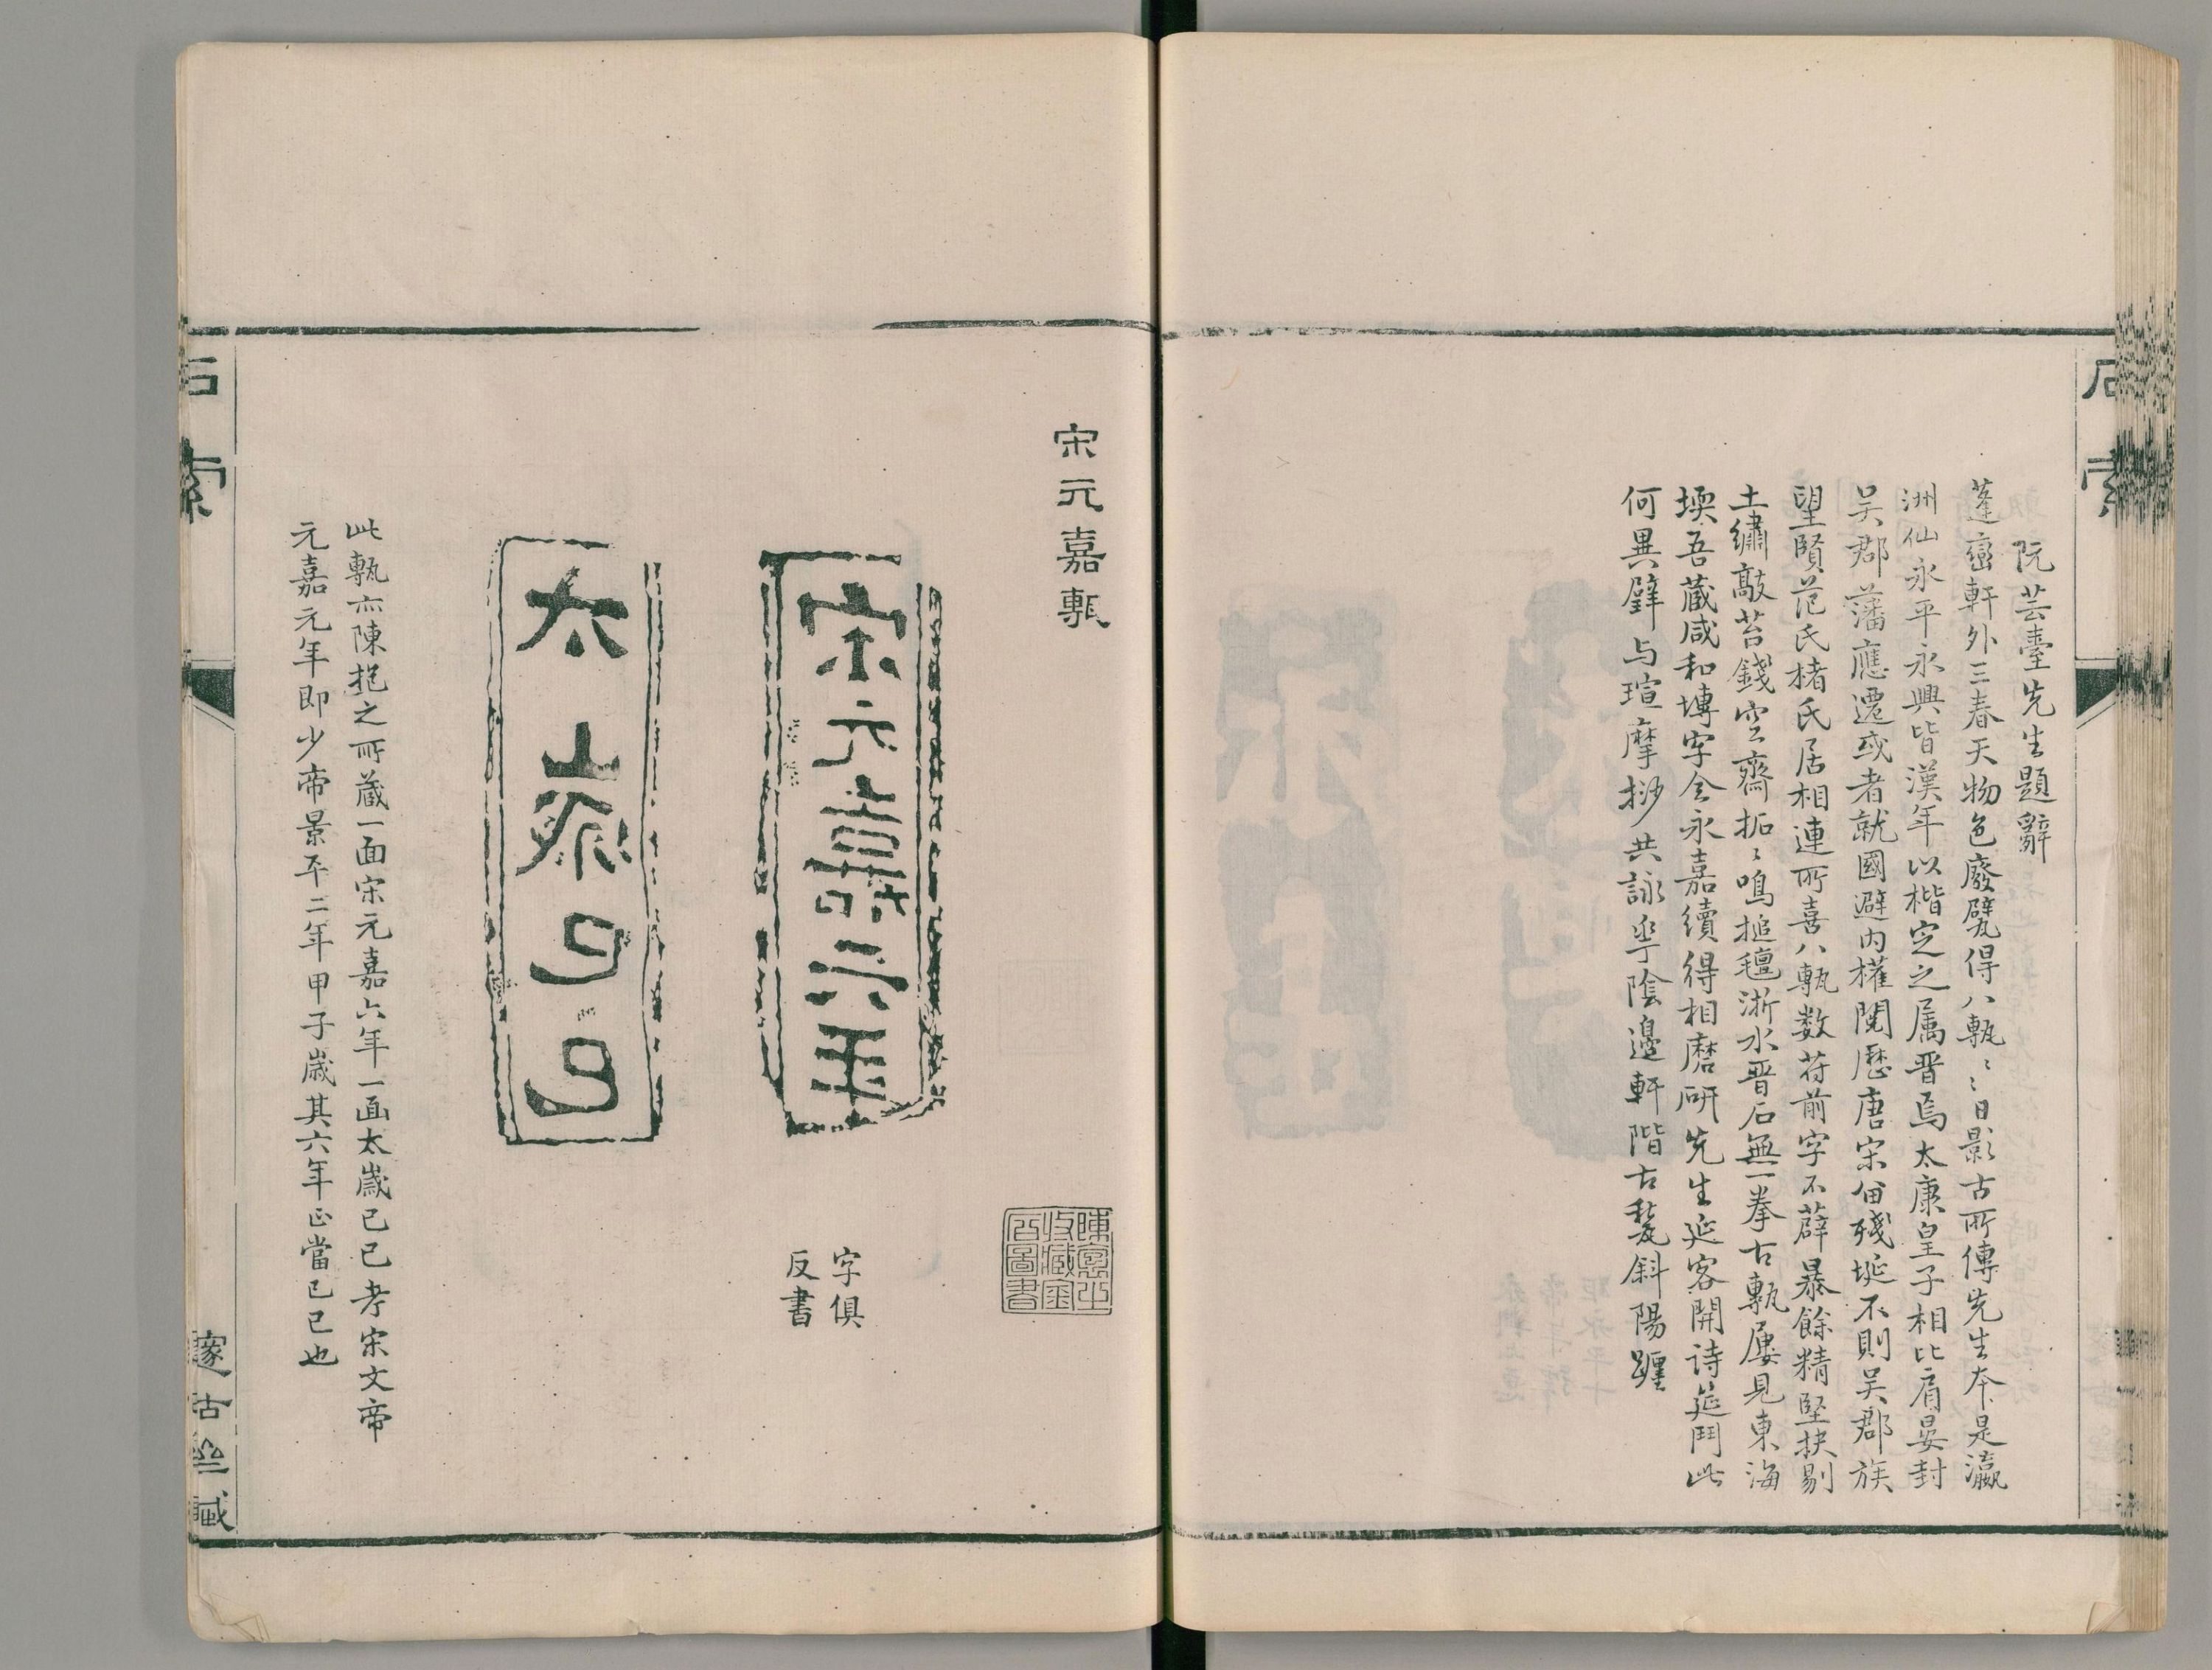 石索
阮芸臺先生題辭
蓬巒軒外三春天物色廢甓得八甎〻〻日影古所傳先生本是瀛
洲仙永平永興皆漢年以楷定之属晋焉太康皇子相比肩晏封
吴郡藩應遷或者就國避内權閲歷唐宋留殘埏不則吴郡族
望賢范氏楮氏居相連所喜八甎数苻前字不薜暴餘精堅抉剔
土繡敲苔錢空齋拓〻鳴搥氊浙水晋石無一拳古甎屢見東海
堧吾蔵咸和塼字全永嘉續得相磨研先生延客開詩筵鬥此
何異躃与瑄摩挲共詠乎陰邊軒階古甃斜陽躔
宋元嘉甎
陳寔生
收藏金
石圖書
宋元嘉六年
字俱
反書
太歲己巳
此甎亦陳抱之所蔵一面宋元嘉六年一面太歲己巳考宋文帝
元嘉元年即少帝景平二年甲子歲其六年正當己巳也
石索
邃古坐臧